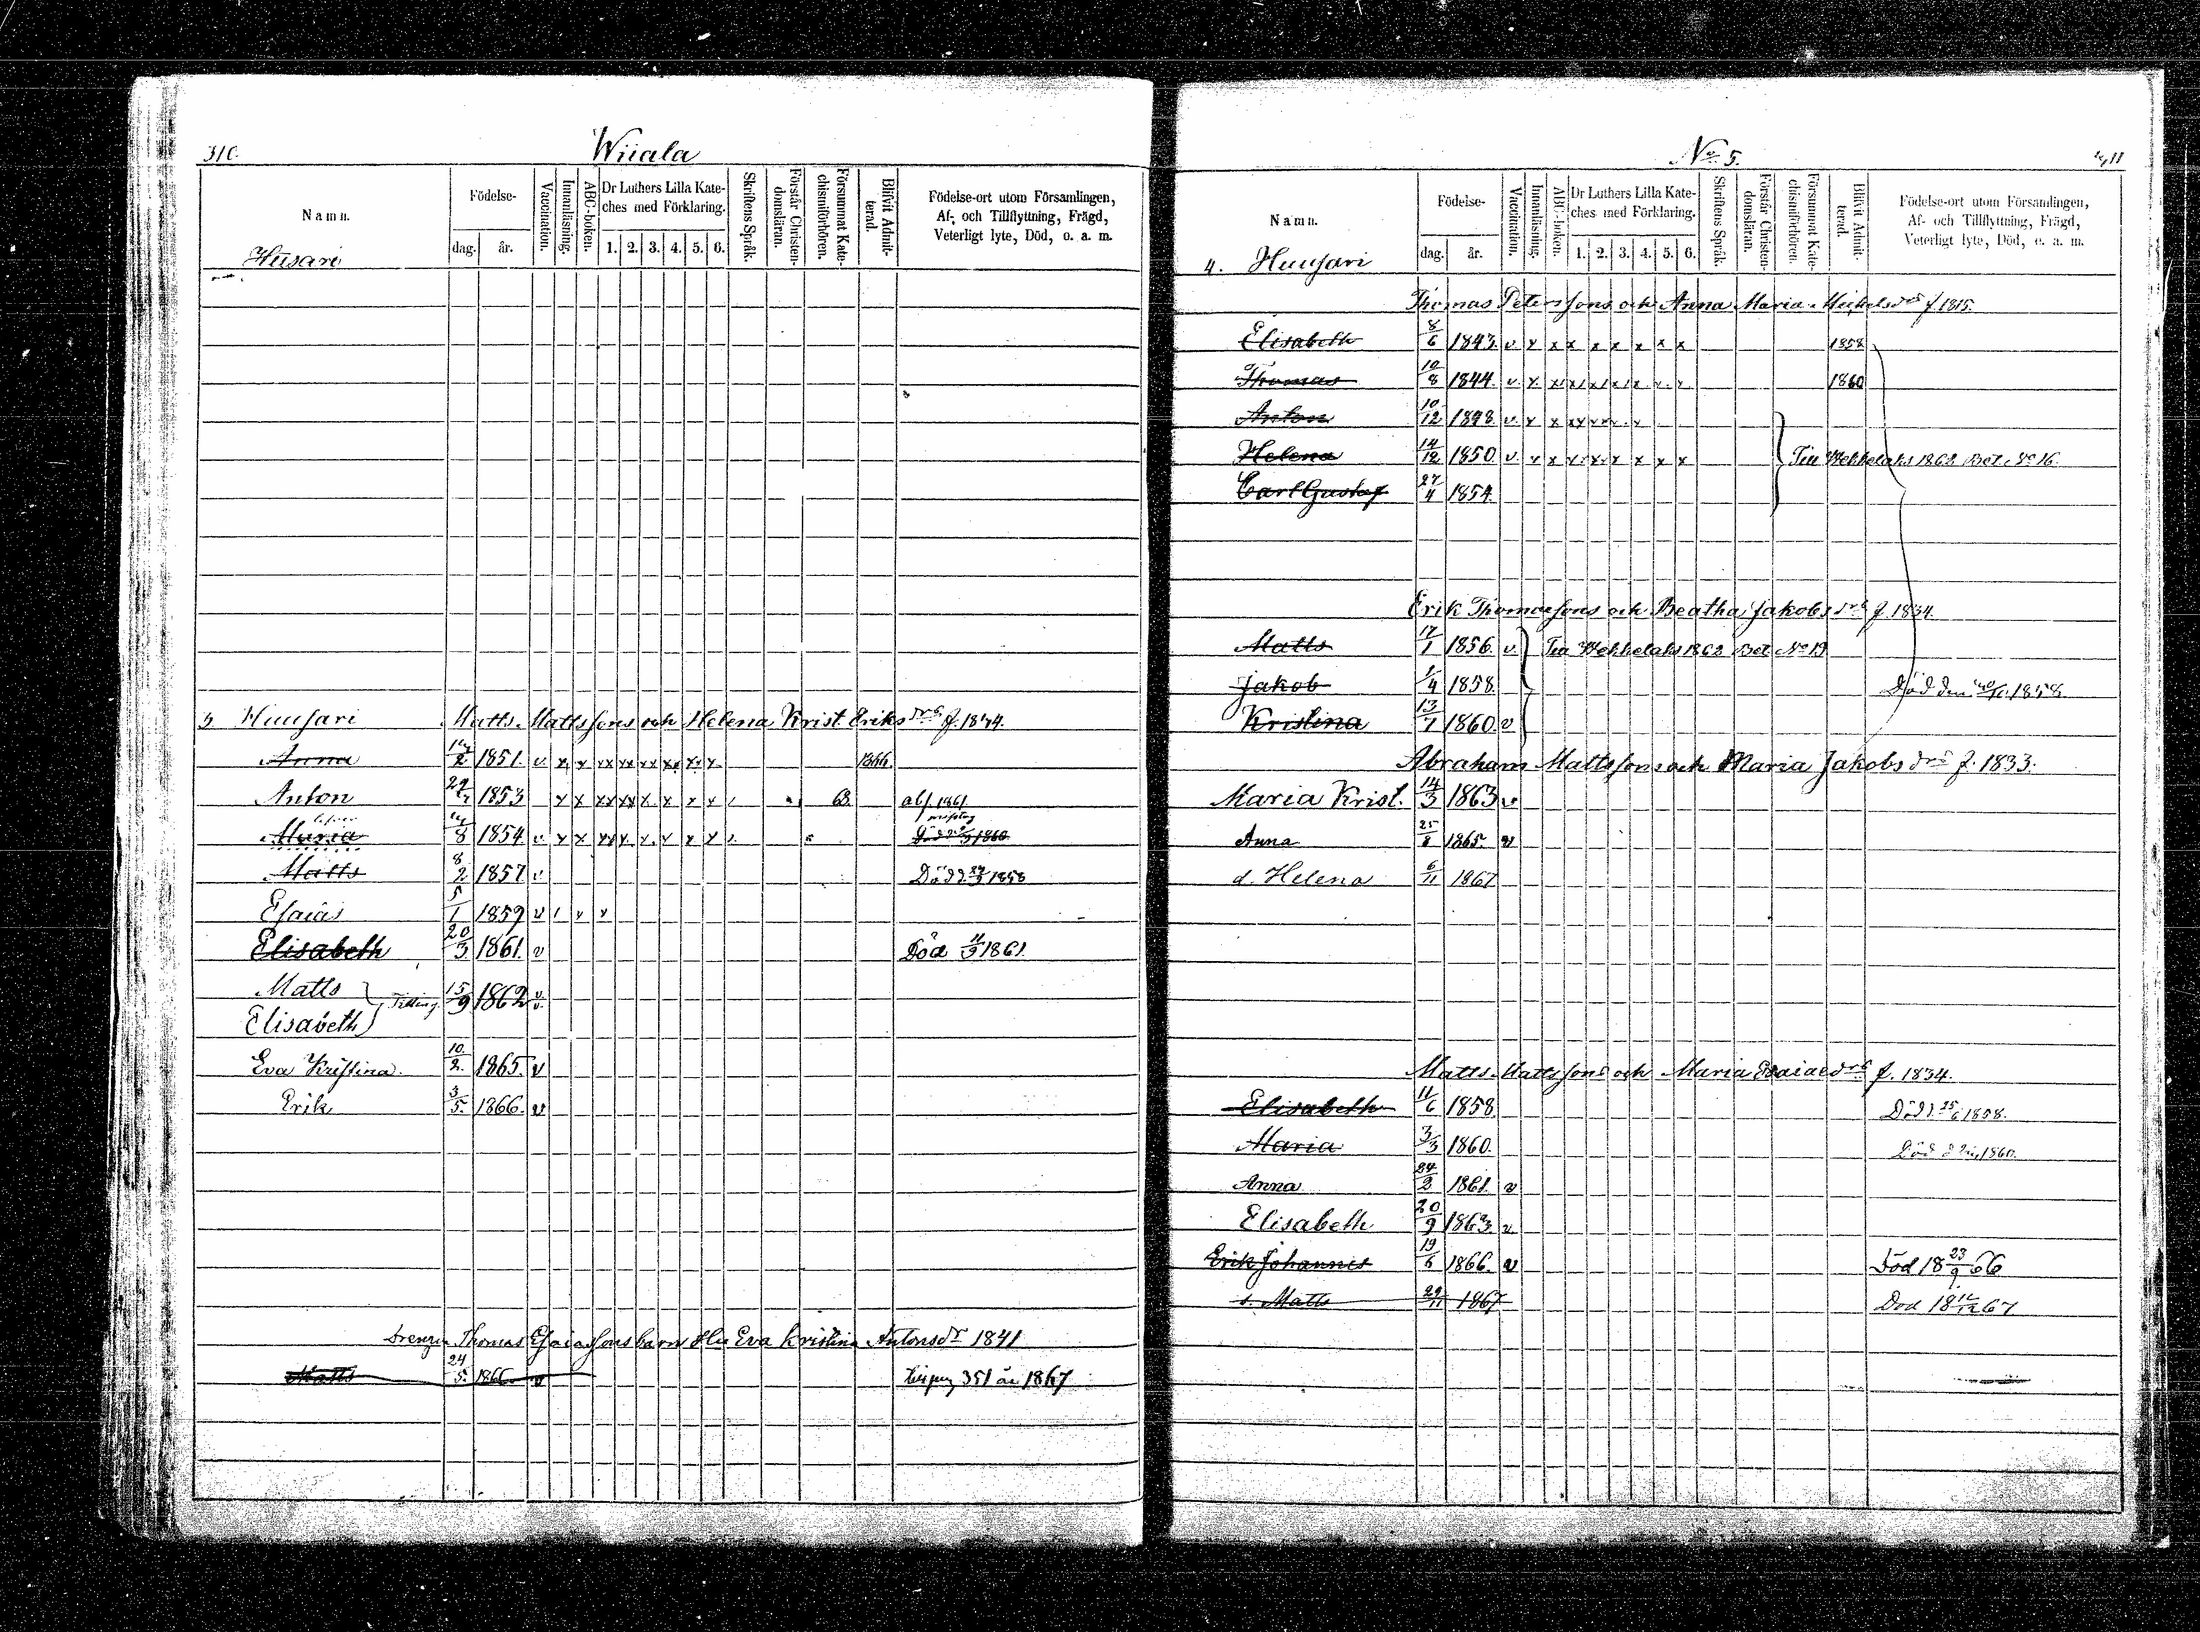 310.
Wiiala
Namn.
Födelse-
dag.
år.
Vaccination.
Innanläsning.
ABC-boken.
Dr Luthers Lilla Kate-
ches med Förklaring.
1. 2. 3. 4. 5. 6.
Skriftens Språk.
Förstår Christen-
domsläran.
Försummat Kate-
chismiförhören.
Blifvit Admit-
terad.
Födelse-ort utom Församlingen,
Af- och Tillflyttning, Frägd,
Veterligt lyte, Död, o. a. m.
Husari
3. Huusari Matts Mattssons och Helena Krist. Eriksdrs f.
Anna 1851. v x x xx xx xx xx x x 1866.
Anton 1853 x x xx xx x x x x 63.
Maria 8 1854. v x x 1860
Matts 8/2 1857 v Död 1858
Esaias 5/1 1859 v
Elisabeth 20/3 1861. v Död 1861.
Matts } Tvilling. 15/9 1862 v
Elisabeth v
Eva Kristina. 10/2 1865. v
Erik 3/5 1866. v
Drengen Thomas Esaiassons barn Hu Eva Kristina Antonsdr 1841
Matts 24/5 1866 v 351 år 1867
No 5.
Namn.
Födelse-
dag.
år.
Vaccination.
Innanläsning.
ABC-boken.
Dr Luthers Lilla Kate-
ches med Förklaring.
1. 2. 3. 4. 5. 6.
Skriftens Språk.
Förstår Christen-
domsläran.
Försummat Kate-
chismiförhören.
Blifvit Admit-
terad.
Födelse-ort utom Församlingen,
Af- och Tillflyttning, Frägd,
Veterligt lyte, Död, o. a. m.
4. Huusari
Thomas Peterssons och Anna Maria Mickelsdrs f. 1815.
Elisabeth 8/6 1843. v x x x x x x x x 1858
Thomas 10/8 1844. v x 1860
Anton 10/12 1848. v x x
Helena 14/12 1850. v x x x x x x x x Till Wehkelaks 1862 Bet. No 16.
Carl Gustaf 27/4 1854.
Erik Thomassons och Beatha Jakobsdrs f. 1834.
Matts 17/1 1856. v Till Wehkelaks 1862 Bet No 19
Jakob 1/4 1858. Död den 1858
Kristina 13/7 1860. v
Abraham Mattssons och Maria Jakobsdrs f. 1833.
Maria Krist. 14/3 1863 v
Anna 25/8 1865. v
d. Helena 6/11 1867
Matts Mattssons och Maria Esaiaedrs f. 1834.
Elisabeth 11/6 1858 Död d. 25/6 1858.
Maria 3/3 1860. Död d 1860.
Anna 24/2 1861. v
Elisabeth 20/9 1863. v
Erik Johannes 19/6 1866. v Död 18 23/9 66
s. Matts 29/11 1867 Död 18 67